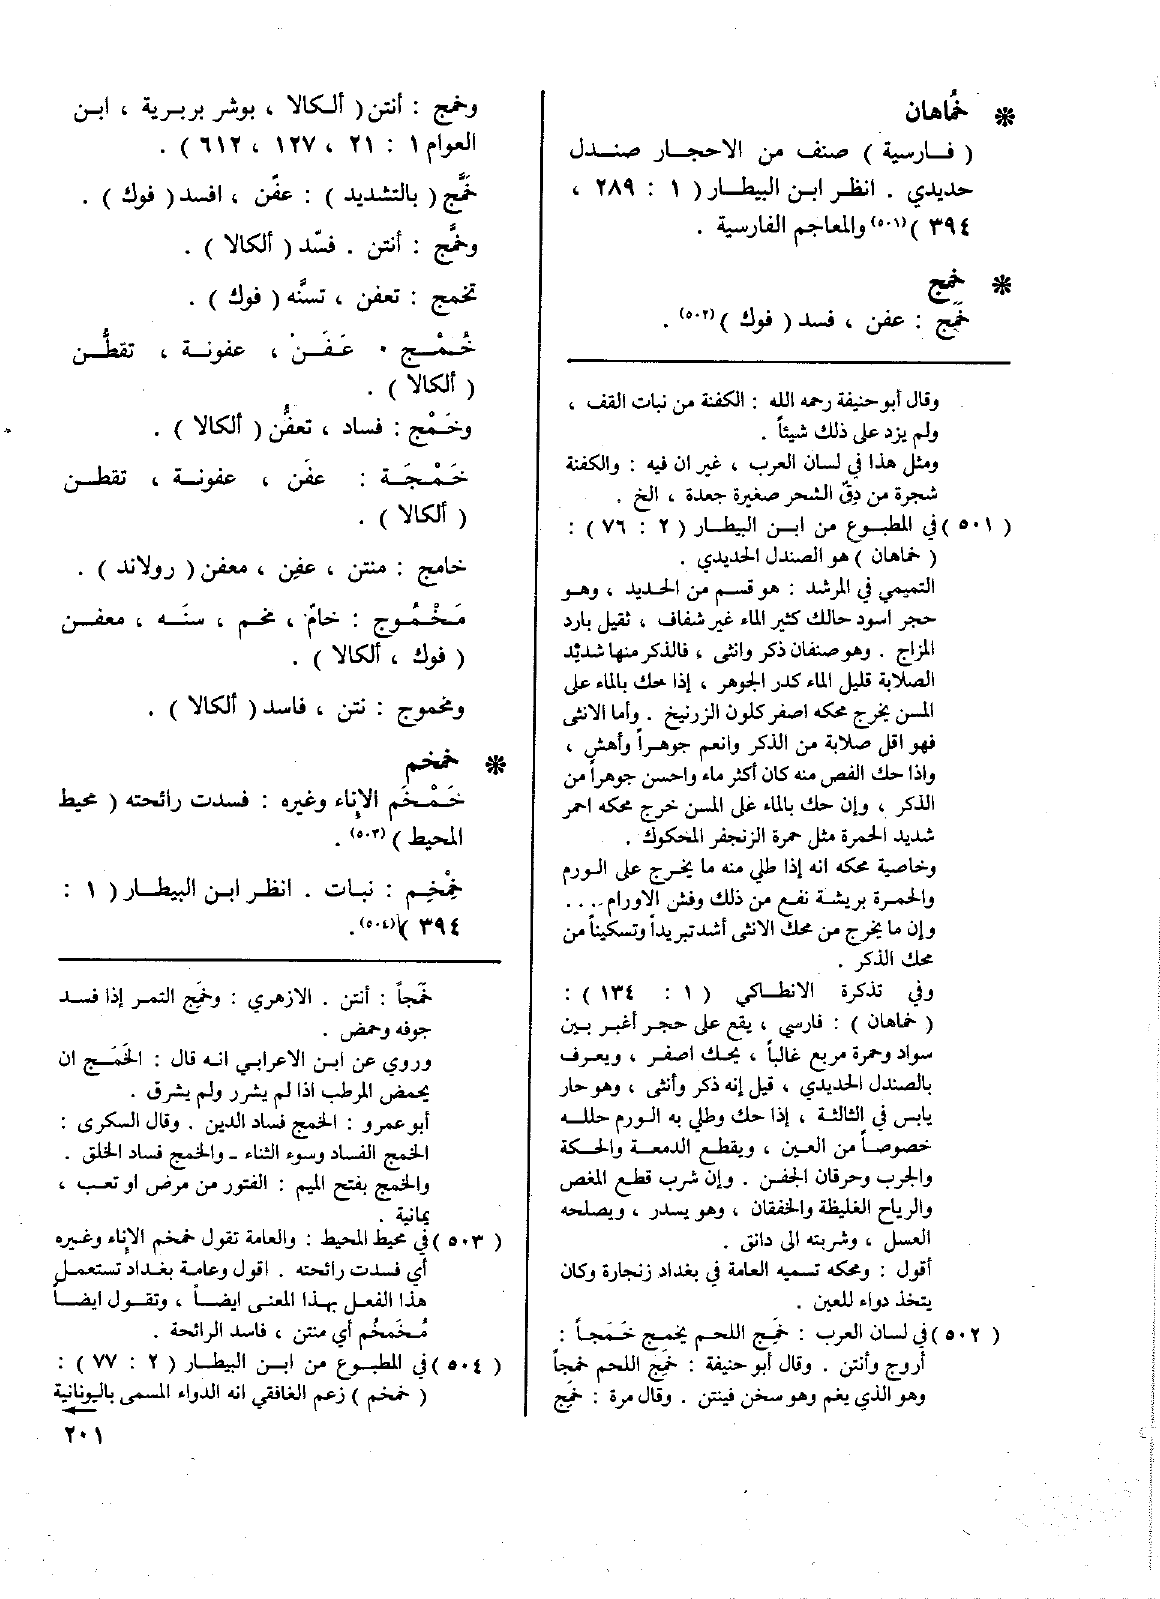 * خُماهان
( فارسية ) صنف من الاحجار صندل
حديدي . انظر ابن البيطار ( ١ : ٢٨٩ ،
٣٩٤ )(٥٠١) والمعاجم الفارسية .
* خمج
خَمِج : عفن ، فسد ( فوك )(٥٠٢) .
وقال أبو حنيفة رحمه الله : الكفنة من نبات القف ،
ولم يزد على ذلك شيئاً .
ومثل هذا في لسان العرب ، غير ان فيه : والكفنة
شجرة من دِقّ الشحر صغيرة جعدة ، الخ .
( ٥٠١ ) في المطبوع من ابن البيطار ( ٢ : ٧٦ ) :
( خماهان ) هو الصندل الحديدي .
التميمي في المرشد : هو قسم من الحديد ، وهو
حجر اسود حالك كثير الماء غير شفاف ، ثقيل بارد
المزاج . وهو صنفان ذكر وانثى ، فالذكر منها شديد
الصلابة قليل الماء كدر الجوهر ، إذا حك بالماء على
المسن يخرج محكه اصفر كلون الزرنيخ . وأما الانثى
فهو اقل صلابة من الذكر وانعم جوهراً وأهش ،
واذا حك الفص منه كان أكثر ماء واحسن جوهراً من
الذكر ، وإن حك بالماء على المسن خرج محكه احمر
شديد الحمرة مثل حمرة الزنجفر المحكوك .
وخاصية محكه انه إذا طلي منه ما يخرج على الورم
والحمرة بريشة نفع من ذلك وفش الاورام ....
وإن ما يخرج من محك الانثى أشد تبريداً وتسكيناً من
محك الذكر .
وفي تذكرة الانطاكي ( ١ : ١٣٤ ) :
( خماهان ) : فارسي ، يقع على حجر أغبر بين
سواد وحمرة مربع غالباً ، يحك اصفر ، ويعرف
بالصندل الحديدي ، قيل إنه ذكر وأنثى ، وهو حار
يابس في الثالثة ، إذا حك وطلي به الورم حلله
خصوصاً من العين ، ويقطع الدمعة والحكة
والجرب وحرقان الجفن . وإن شرب قطع المغص
والرياح الغليظة والخفقان ، وهو يسدر ، ويصلحه
العسل ، وشربته الى دانق .
أقول : ومحكه تسميه العامة في بغداد زنجارة وكان
يتخذ دواء للعين .
( ٥٠٢ ) في لسان العرب : خَمِج اللحم يخمج خَمَجاً :
أروح وأنتن . وقال أبو حنيفة : خَمِج اللحم خمجاً
وهو الذي يغم وهو سخن فينتن . وقال مرة : خَمِج
وخمج : أنتن ( ألكالا ، بوشر بربرية ، ابن
العوام ١ : ٢١ ، ١٢٧ ، ٦١٢ ) .
خَمَّج ( بالتشديد ) : عفّن ، افسد ( فوك ) .
وخمَّج : أنتن . فسّد ( ألكالا ) .
تخمج : تعفن ، تسنَّه ( فوك ) .
خُمْج . عَفَنْ ، عفونة ، تقطُّن
( ألكالا ) .
وخَمْج : فساد ، تعفُّن ( ألكالا ) .
خَمْجَة : عفَن ، عفونة ، تقطن
( ألكالا ) .
خامج : منتن ، عفِن ، معفن ( رولاند ) .
مَخْمُوج : خامّ ، مخم ، سنَه ، معفن
( فوك ، ألكالا ) .
ومخموج : نتن ، فاسد ( ألكالا ) .
* خمخم
خَمْخَم الإناء وغيره : فسدت رائحته ( محيط
المحيط )(٥٠٣) .
خِمْخِم : نبات . انظر ابن البيطار ( ١ :
٣٩٤ )(٥٠٤) .
خَمَجاً : أنتن . الازهري : وخَمِج التمر إذا فسد
جوفه وحمض .
وروي عن ابن الاعرابي انه قال : الخَمَج ان
يحمض الرطب اذا لم يشرر ولم يشرق .
أبو عمرو : الخمج فساد الدين . وقال السكرى :
الخمج الفساد وسوء الثناء - والخمج فساد الخلق .
والخمج بفتح الميم : الفتور من مرض او تعب ،
يمانية .
( ٥٠٣ ) في محيط المحيط : والعامة تقول خمخم الإناء وغيره
أي فسدت رائحته . اقول وعامة بغداد تستعمل
هذا الفعل بهذا المعنى ايضاً ، وتقول ايضاً
مُخَمخُم أي منتن ، فاسد الرائحة .
( ٥٠٤ ) في المطبوع من ابن البيطار ( ٢ : ٧٧ ) :
( خمخم ) زعم الغافقي انه الدواء المسمى باليونانية
٢٠١